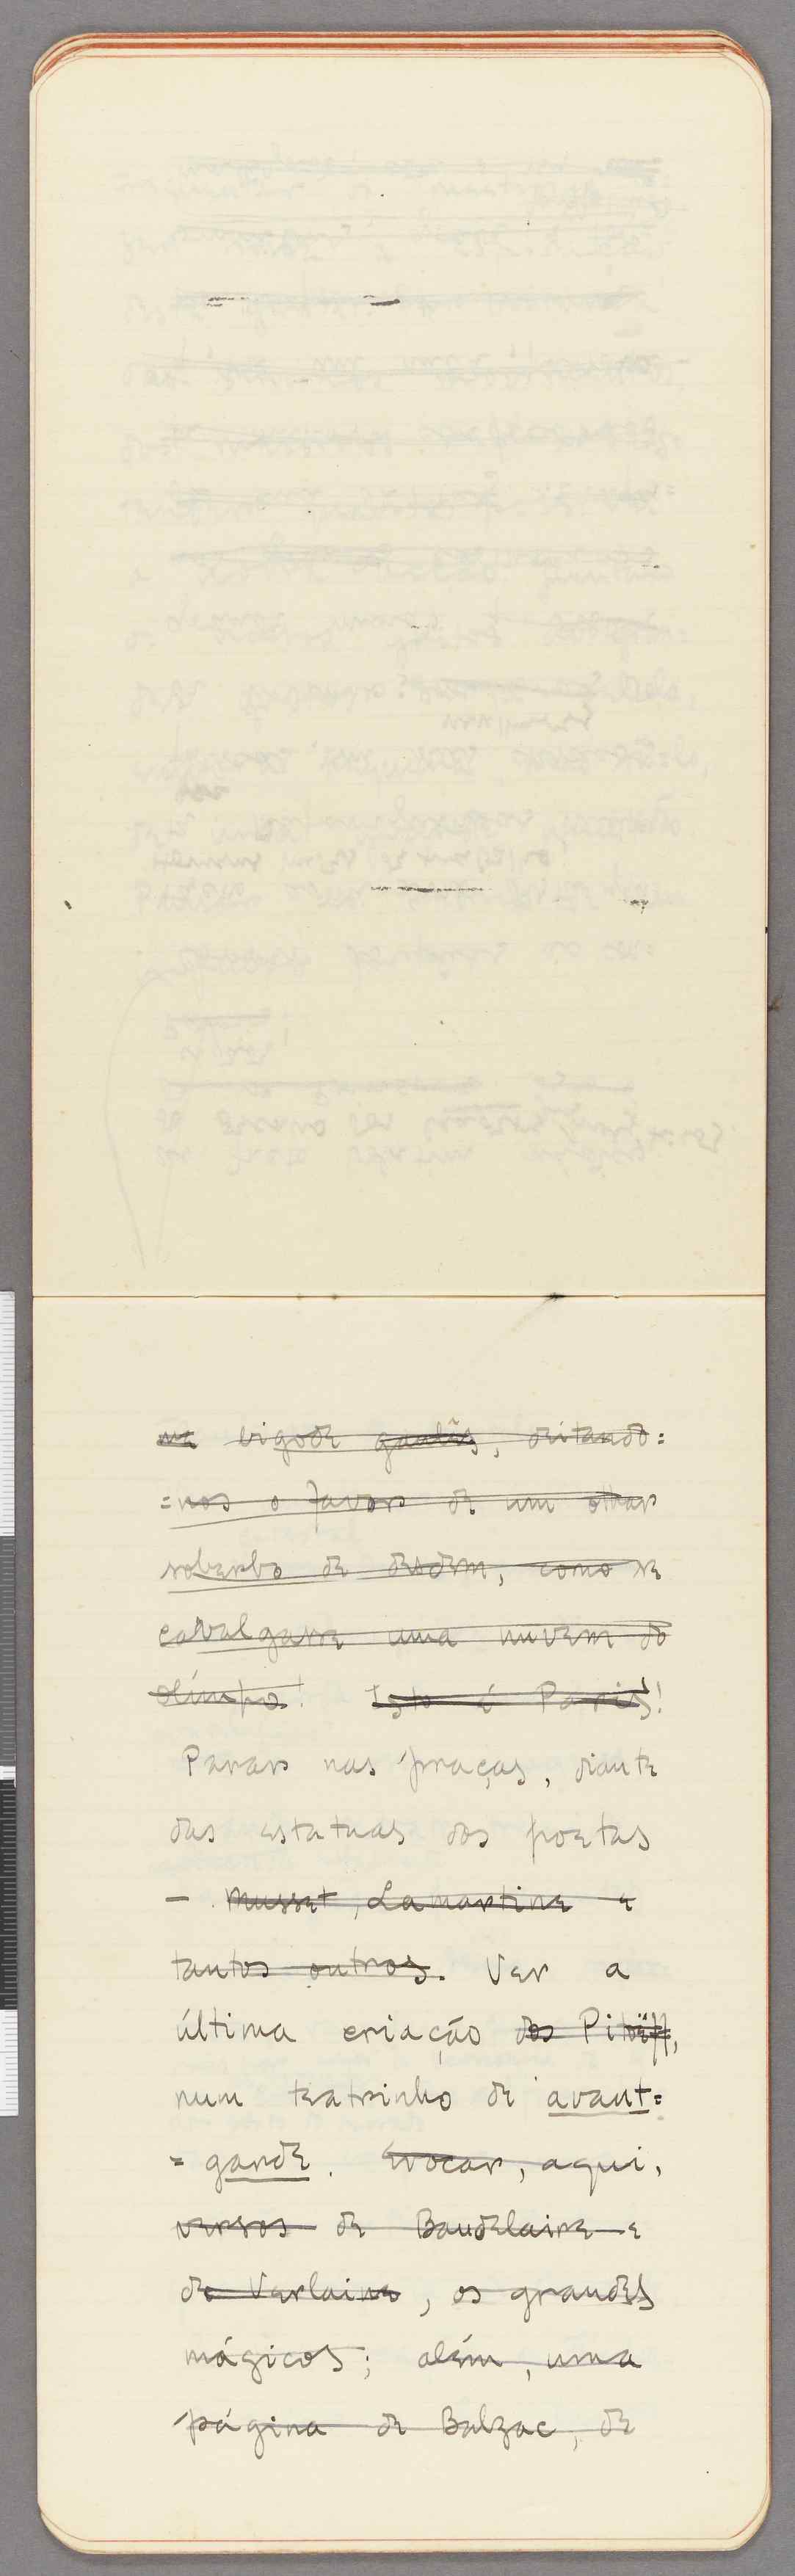 na bigode gaulês, deitando=
=nos o favor de um olhar
soberbo de desdem, como se
cavalgasse uma nuvem do
Olímpo! Isto é Paris!
Parar nas praças, diante
das estatuas dos poetas
– Musset, Lamartine e
tantos outros. Ver a
última criação dos Pitöeff,
num teatrinho de avant=
=garde. Evocar, aqui,
versos de Baudelaire e
de Verlaine, os grandes
mágicos; além, uma
página de Balzac, de